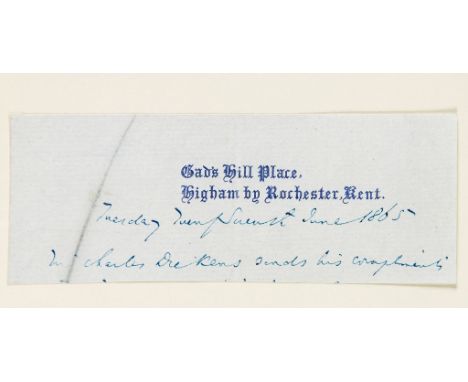 Gad's Hill Place,
Higham by Rochester, Kent.
Tuesday Twenty Seventh June 1865
Mr Charles Dickens sends his compliments